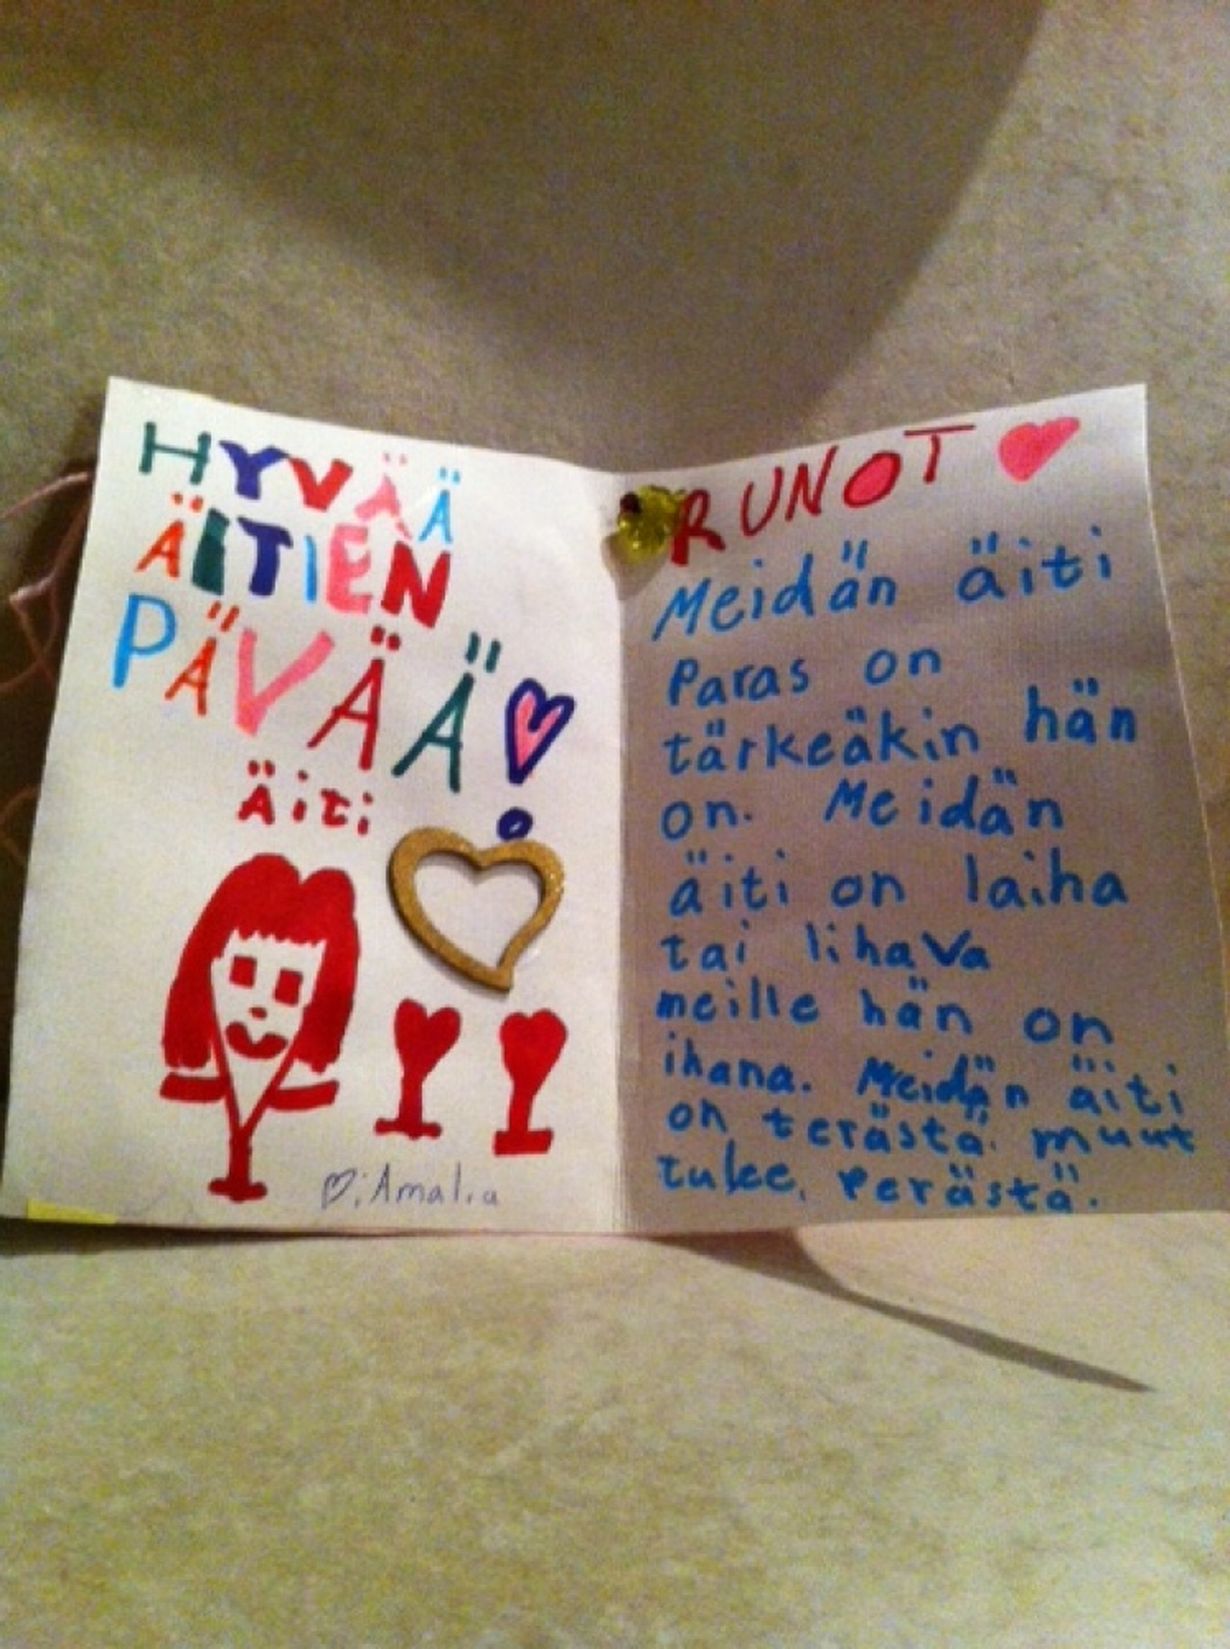 HYVÄÄ
ÄITIEN
PÄVÄÄ
äiti
;Amalia
RUNOT
Meidän äiti
Paras on
tärkeäkin hän
on. Meidän
äiti on laiha
tai lihava
meille hän on
ihana. Meidän äiti
on terästä. muut
tulee, perästä.